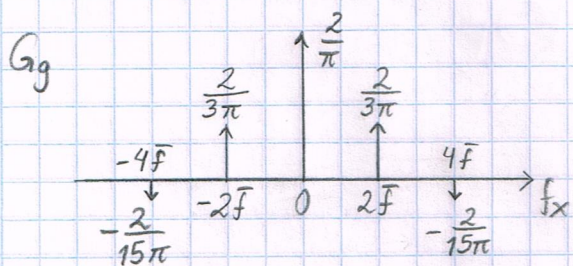 G_g
2/π
2/3π 2/3π
-4f̄ 4f̄
-2f̄ 0 2f̄ f_x
-2/15π -2/15π